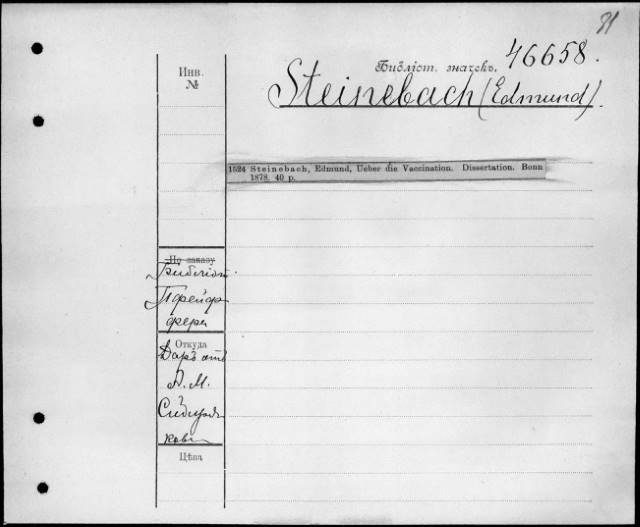 81
Инв.
№
Библіот. значекъ. 46658.
Steinebach (Edmund).
1524 Steinebach, Edmund, Ueber die Vaccination. Dissertation. Bonn
1878. 40 p.
По заказу
Библіот.
Пфейф
фера
Откуда
Даръ отъ
А. М.
Цѣна